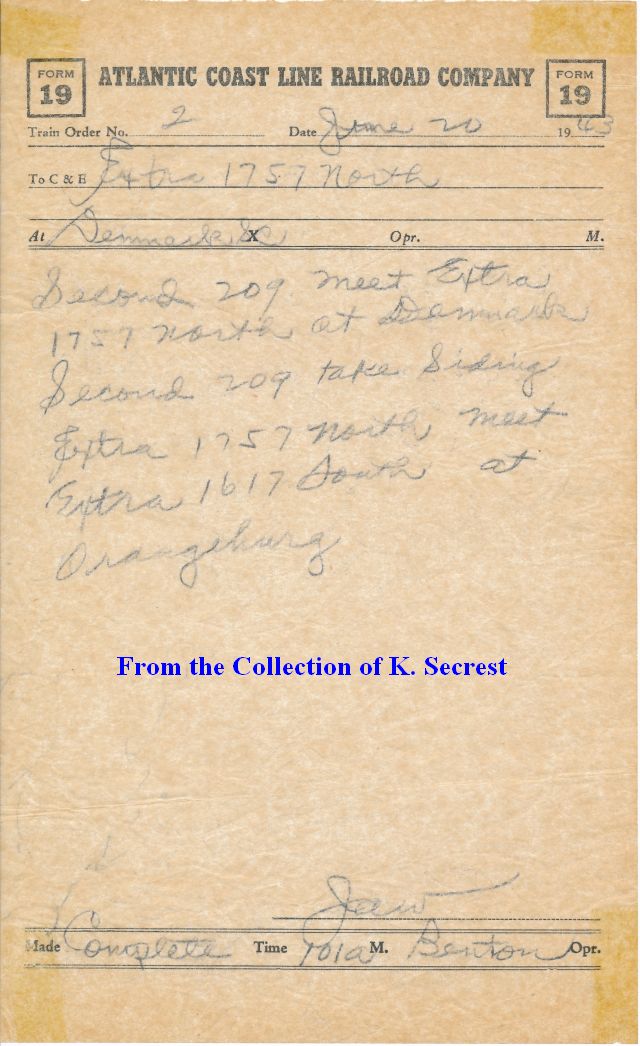 FORM 19 ATLANTIC COAST LINE RAILROAD COMPANY FORM 19
Train Order No. 2 Date June 20 1943
To C & E Extra 1757 North
At Denmark SC X Opr. M.
Second 209 meet Extra
1757 North at Denmark
Second 209 take siding
Extra 1757 North meet
Extra 1617 South at
Orangeburg
From the Collection of K. Secrest
Made Complete Time 101a M. Benton Opr.